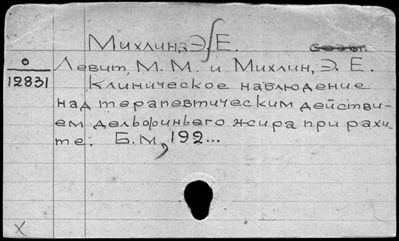 Михлина, Э. Е.
о
12831
Левит, М. М. и Михлин, Э. Е.
Клиническое наблюдение
над терапевтическим действи-
ем дельфиньего жира при рахи-
те. Б. м, 192...
X